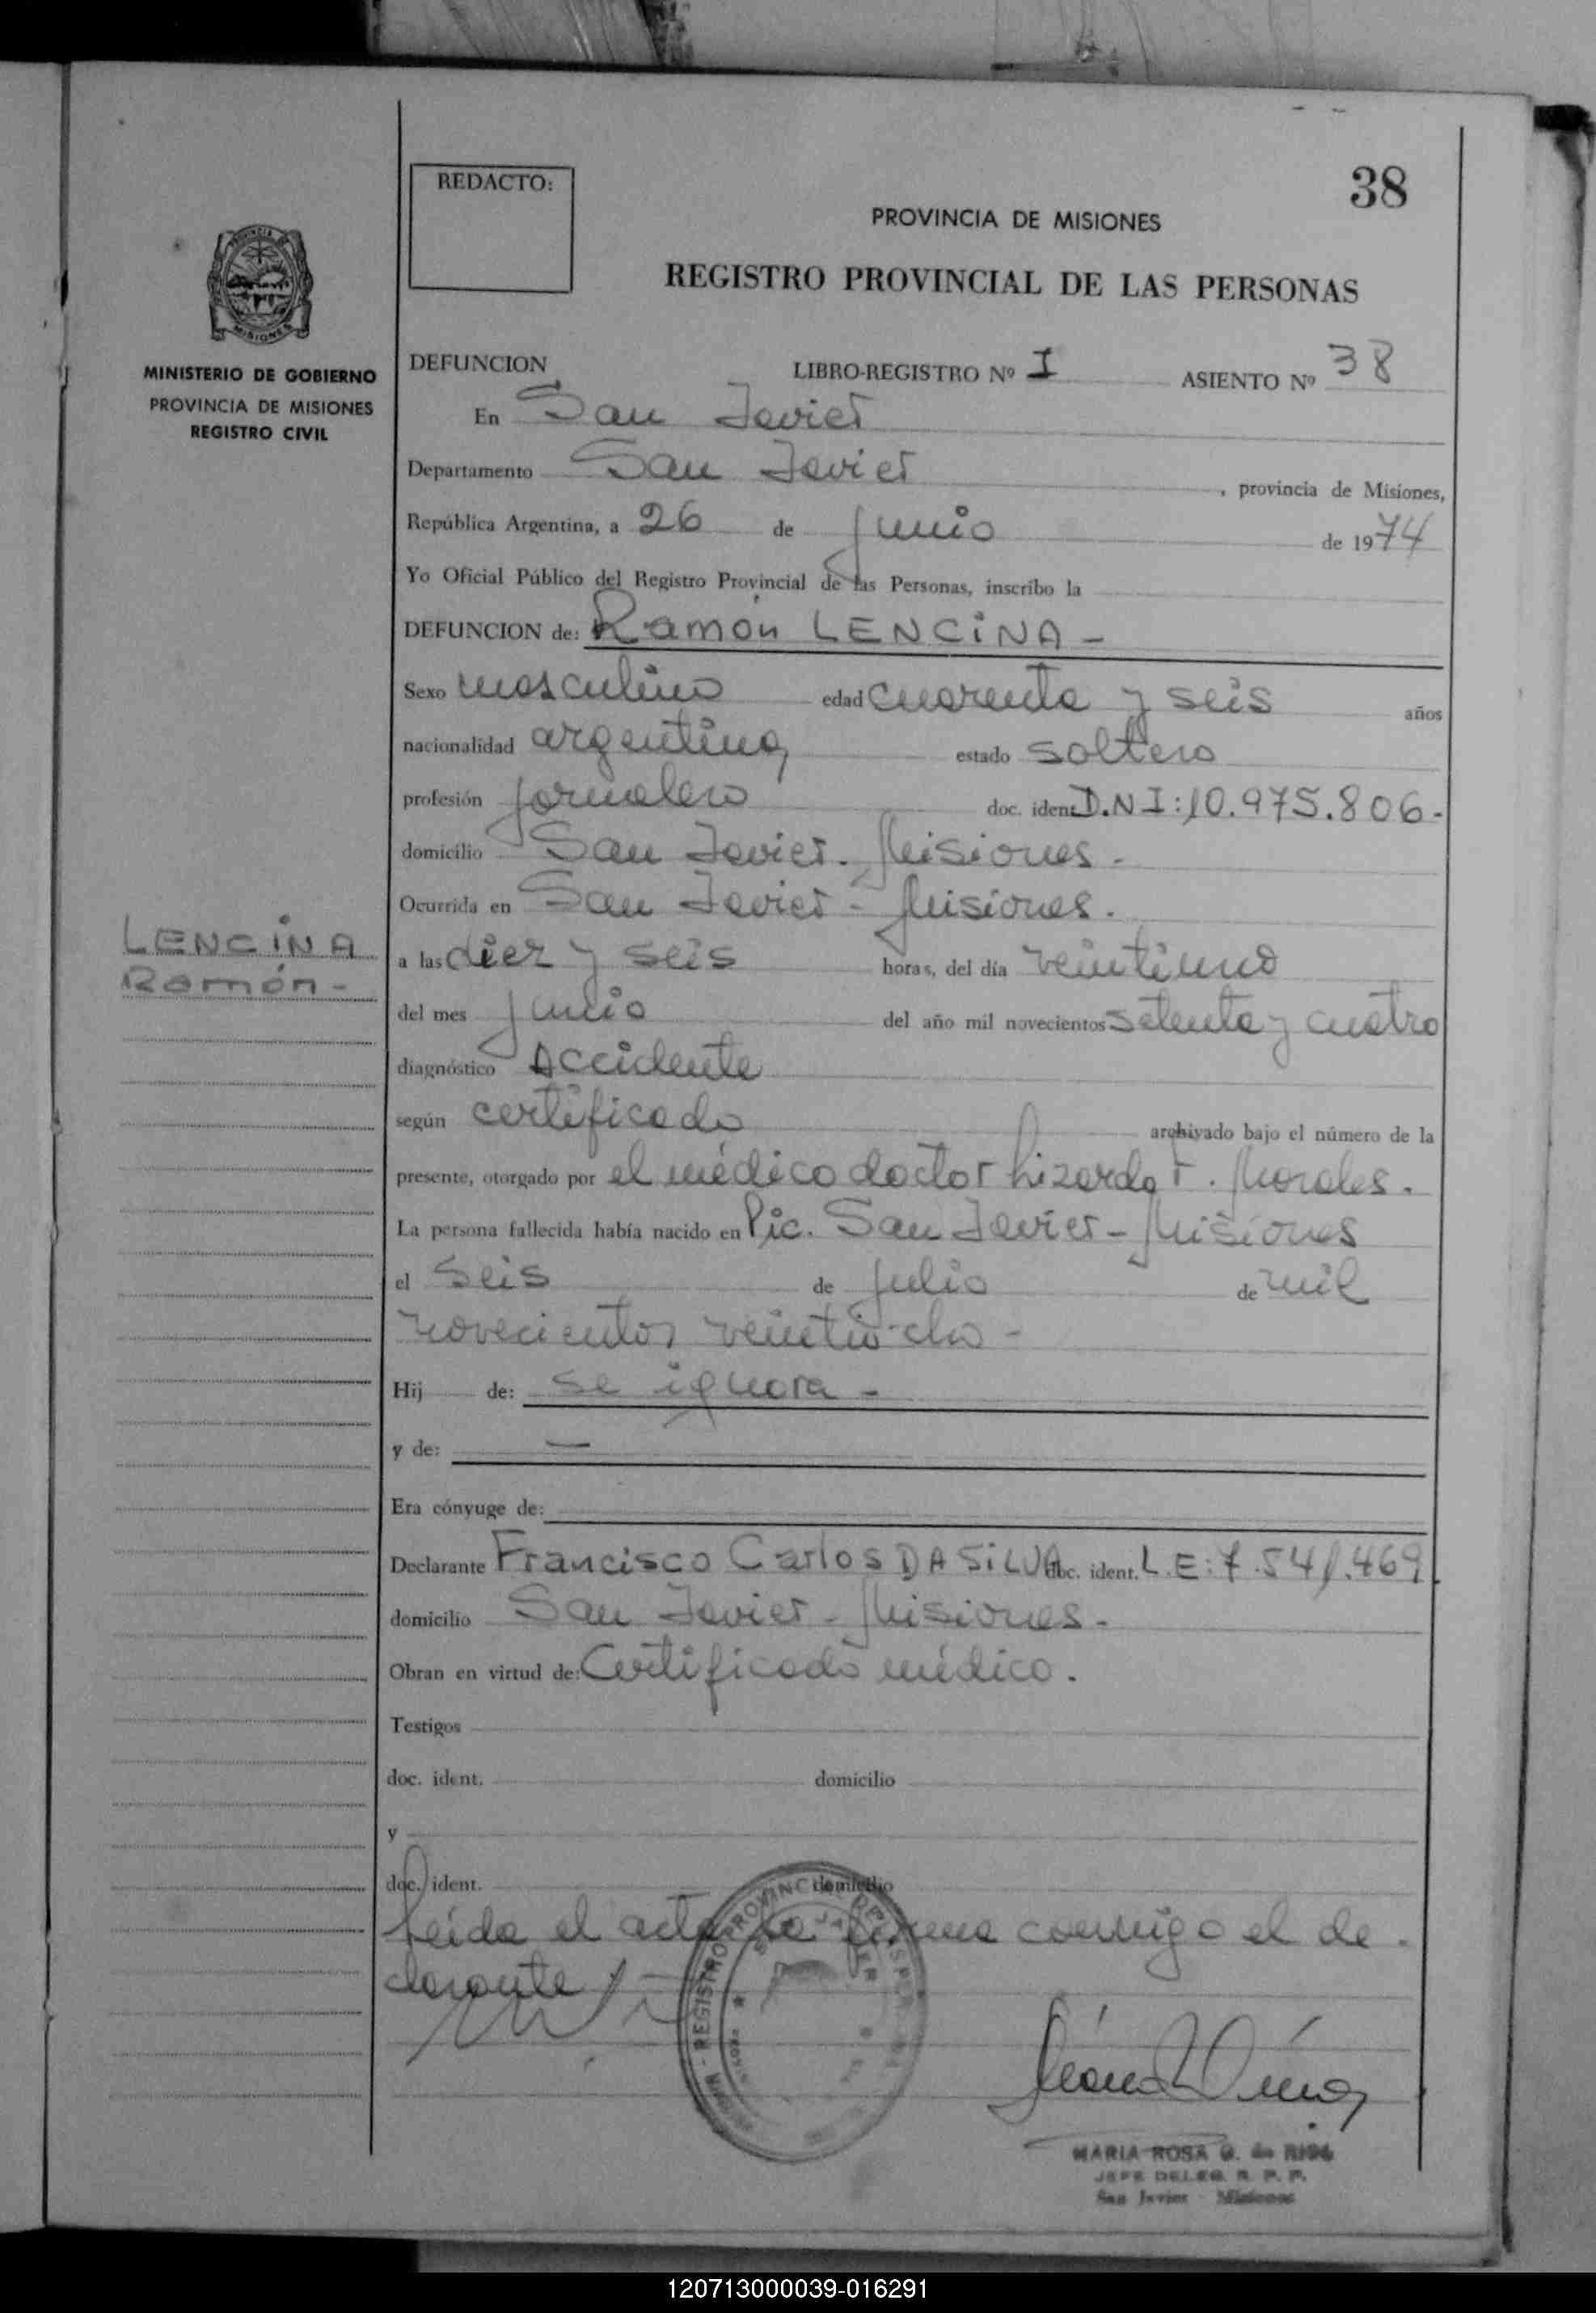 38
REDACTO:
PROVINCIA DE MISIONES
REGISTRO PROVINCIAL DE LAS PERSONAS
MISIONES
MINISTERIO DE GOBIERNO
PROVINCIA DE MISIONES
REGISTRO CIVIL
DEFUNCION LIBRO-REGISTRO Nº I ASIENTO Nº 38
En San Javier
Departamento San Javier, provincia de Misiones,
República Argentina, a 26 de junio de 1974
Yo Oficial Público del Registro Provincial de las Personas, inscribo la
DEFUNCION de: Ramón LENCINA -
Sexo masculino edad cuarenta y seis años
nacionalidad argentina estado soltero
profesión jornalero doc. ident. D.N I: 10.975.806-
domicilio San Javier. Misiones -
Ocurrida en San Javier - Misiones.
LENCINA
Ramón -
a las diez y seis horas, del día veintiuno
del mes junio del año mil novecientos setenta y cuatro
diagnóstico Accidente
según certificado archivado bajo el número de la
presente, otorgado por el médico doctor Lizardo T. Morales.
La persona fallecida había nacido en Pic. San Javier - Misiones
el seis de julio de mil
novecientos veintiocho -
Hij de: se ignora -
y de: —
Era cónyuge de:
Declarante Francisco Carlos DA SILVA doc. ident. L.E: 7.541.469
domicilio San Javier - Misiones -
Obran en virtud de: Certificado médico.
Testigos
doc. ident. domicilio
y
doc. ident. domicilio
Leída el acta la firma conmigo el de-
clarante
MARIA ROSA G. de RIOS
JEFE DELEG. R. P. P.
San Javier - Misiones
120713000039-016291